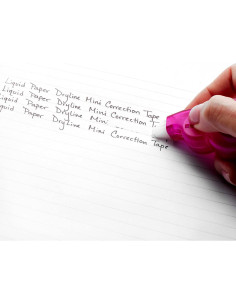 Liquid Paper Dryline Mini Correction Tape
Liquid Paper Dryline Mini Correction T
iquid Paper Dryline Min
iquid Paper Dryline Mini Correction Tape